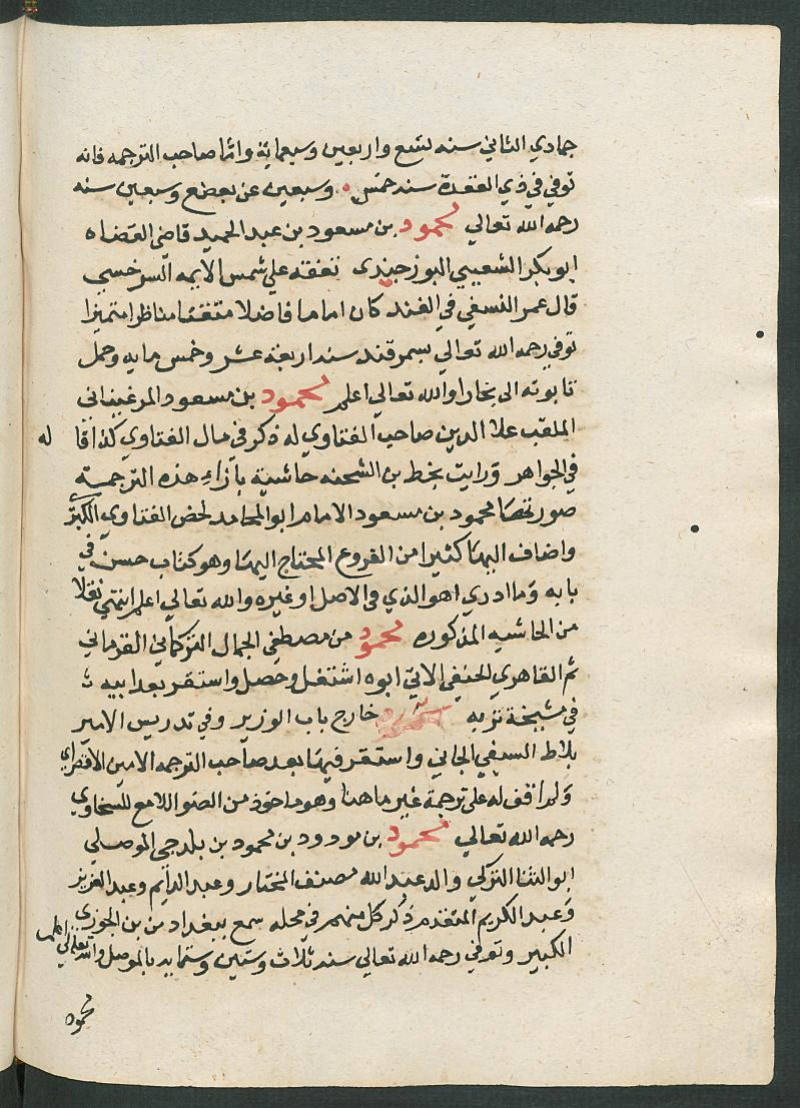 جمادي الثاني سنه تسع واربعين وسبعماية واما صاحب الترجمه فانه
توفي في ذي القعدة سنه خمس وسبعين عن بضع وسبعين سنه
رحمه الله تعالي محمود بن مسعود بن عبد الحميد قاضي القضاه
ابو بكر الشعيبي البوزجندي تفقه علي شمس الايمه السرخسي
قال عمر النسفي في القند كان اماما فاضلا متقنا مناظرا متميزا
توفي رحمه الله تعالي بسمرقند سنه اربعة عشر وخمس مايه وحمل
تابوته الى بخارا والله تعالي اعلم محمود بن مسعود المرغيناني
الملقب علا الدين صاحب الفتاوي له ذكر في مال الفتاوي كذا قا له
في الجواهر ورايت بخط بن الشحنه حاشية بازاء هذه الترجمة
صورتها محمود بن مسعود الامام ابو المحامد لخص الفتاوي الكبري
واضاف اليها كثيرا من الفروع المحتاج اليها وهو كتاب حسن في
بابه وما ادري اهو الذي في الاصل او غيره والله تعالي اعلم انتهي نقلا
من الحاشيه المذكوره محمود من مصطفي الجمال التركماني القرماني
ثم القاهري الحنفي الاتي ابوه اشتغل وحصل واستقر بعد ابيه
في مشيخة تربه خارج باب الوزير وفي تدريس الامير
بلاط السيفي الجاني واستقر فيها بعد صاحب الترجمه الامين الاقصراي
ولم اقف له على ترجمة غير ما هنا وهو ماخوذ من الضو اللامع للسخاوي
رحمه الله تعالي محمود بن مودود بن محمود بن بلدجي الموصلي
ابو الثنا التركي والد عبد الله مصنف المختار وعبد الدايم وعبد العزيز
وعبد الكريم المتقدم ذكر كل منهم في محله سمع ببغداد من بن الجوزي
الكبير وتوفي رحمه الله تعالي سنه ثلاث وستين وستمايه بالموصل والله تعالي اعلم
محمود